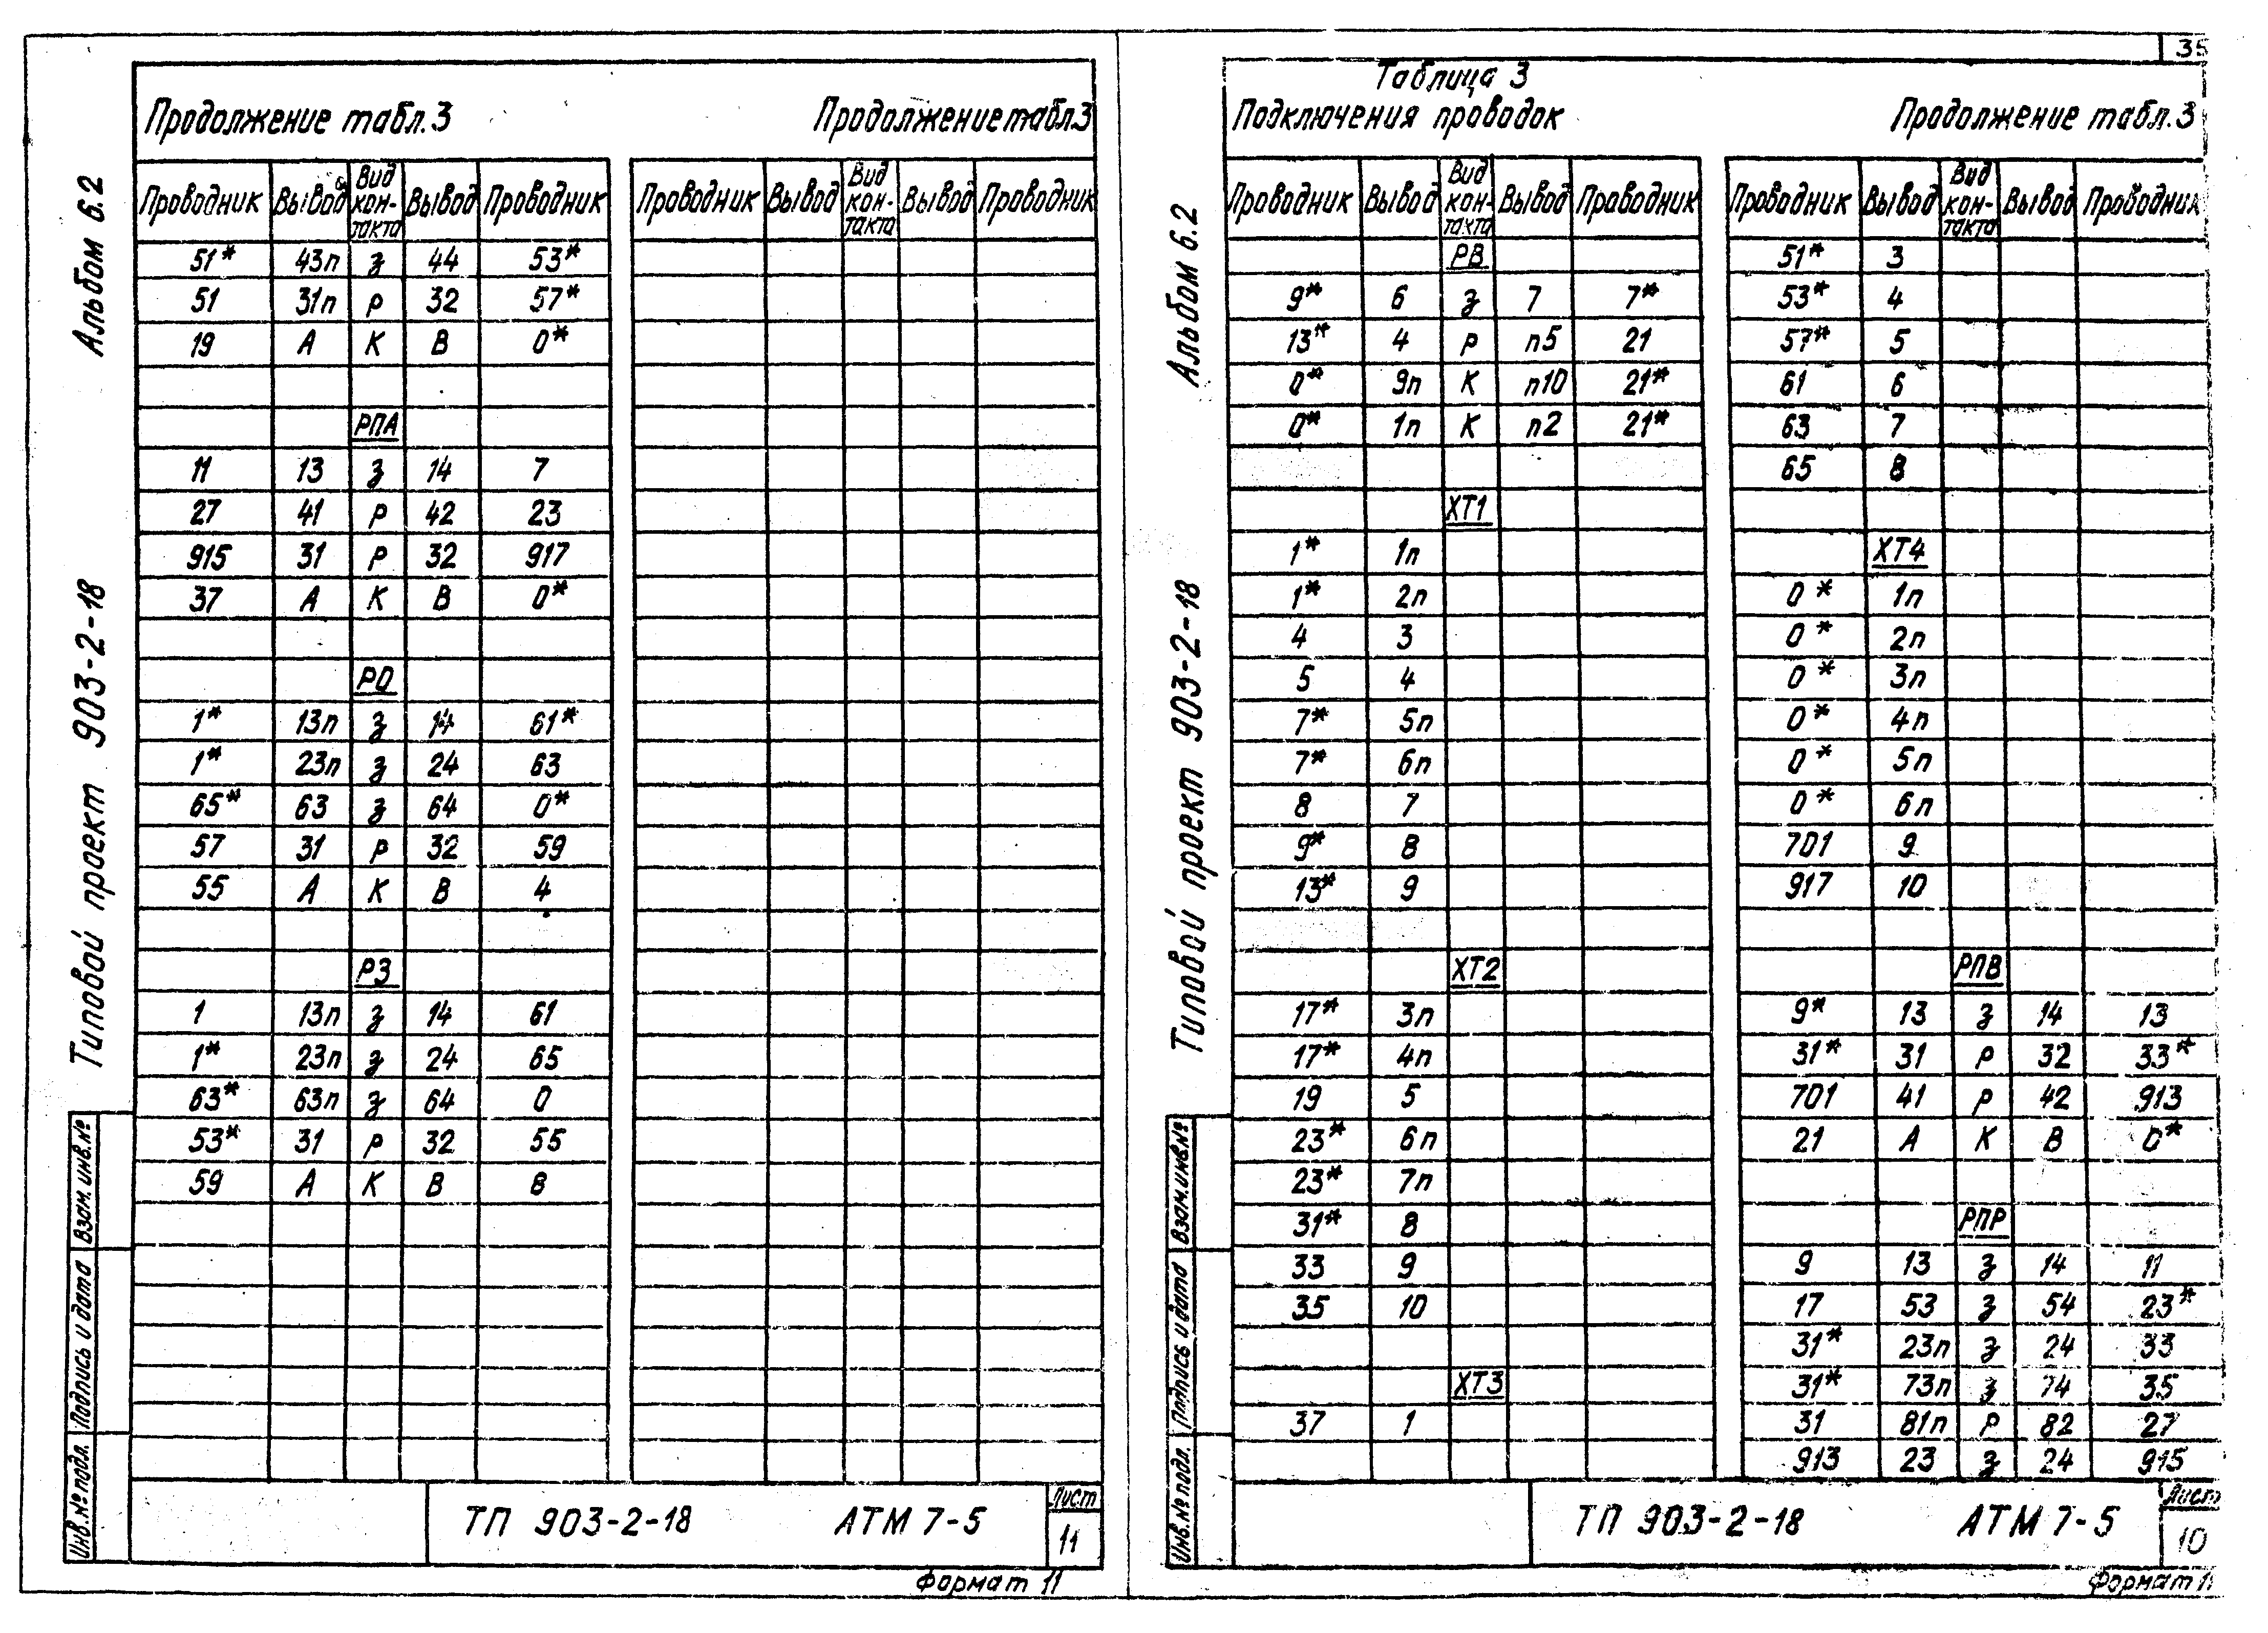 Альбом 6.2
Типовой проект 903-2-18
Взам. инв.№
Подпись и дата
Инв.№ подл.
Продолжение табл.3
Проводник Вывод Вид кон-такта Вывод Проводник
51* 43п з 44 53*
51 31п р 32 57*
19 А К В 0*
РПА
11 13 з 14 7
27 41 р 42 23
915 31 р 32 917
37 А К В 0*
РО
1* 13п з 14 61*
1* 23п з 24 63
65* 63 з 64 0*
57 31 р 32 59
55 А К В 4
РЗ
1 13п з 14 61
1* 23п з 24 65
63* 63п з 64 0
53* 31 р 32 55
59 А К В 8
Продолжение табл.3
Проводник Вывод Вид кон-такта Вывод Проводник
ТП 903-2-18 АТМ 7-5
Лист
11
Формат 11
35
Альбом 6.2
Типовой проект 903-2-18
Взам. инв.№
Подпись и дата
Инв.№ подл.
Таблица 3
Подключения проводок
Проводник Вывод Вид кон-такта Вывод Проводник
РВ
9* 6 з 7 7*
13* 4 р п5 21
0* 9п К п10 21*
0* 1п К п2 21*
ХТ1
1* 1п
1* 2п
4 3
5 4
7* 5п
7* 6п
8 7
9* 8
13* 9
ХТ2
17* 3п
17* 4п
19 5
23* 6п
23* 7п
31* 8
33 9
35 10
ХТ3
37 1
Продолжение табл.3
Проводник Вывод Вид кон-такта Вывод Проводник
51* 3
53* 4
57* 5
61 6
63 7
65 8
ХТ4
0* 1п
0* 2п
0* 3п
0* 4п
0* 5п
0* 6п
701 9
917 10
РПВ
9* 13 з 14 13
31* 31 р 32 33*
701 41 р 42 913
21 А К В 0*
РПР
9 13 з 14 11
17 53 з 54 23*
31* 23п з 24 33
31* 73п з 74 35
31 81п р 82 27
913 23 з 24 915
ТП 903-2-18 АТМ 7-5
Лист
10
Формат 11